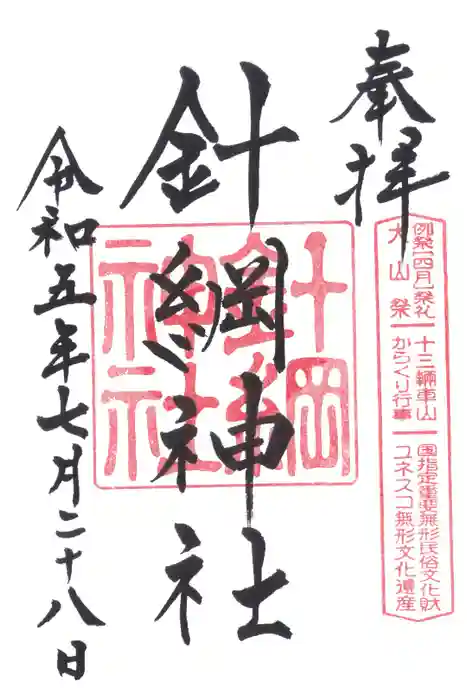 奉拝
例祭(四月)祭礼
犬山祭
十三輛車山
からくり行事
国指定重要無形民俗文化財
ユネスコ無形文化遺産
針綱神社
針綱
神社
令和五年七月二十八日